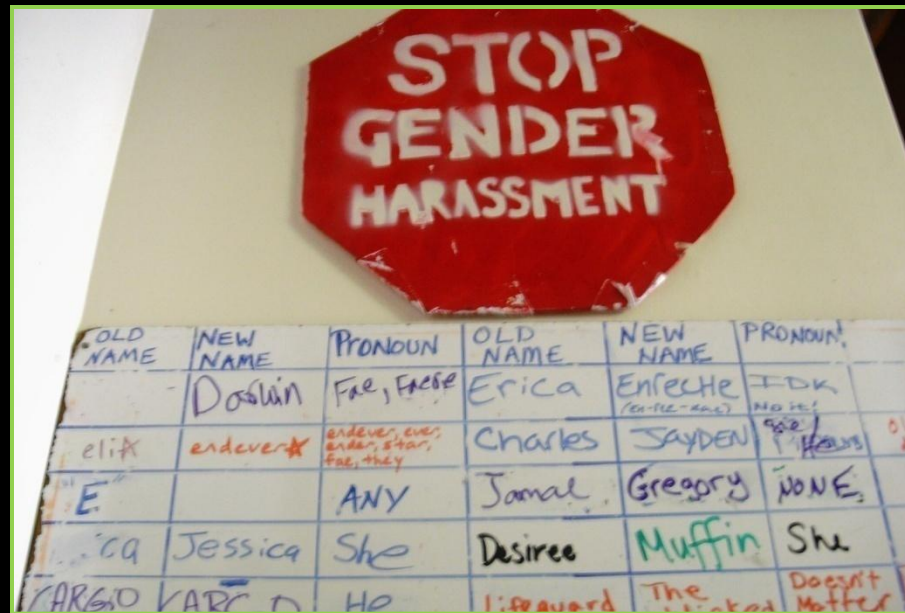 STOP
GENDER
HARASSMENT
OLD NAME NEW NAME PRONOUN OLD NAME NEW NAME PRONOUN!
Fae, Faese Erica EnrecHe IDK
No it!
elix endever* endever, ever, Charles JAYDEN
ender, star,
fae, they
E ANY Jamal Gregory NONE
ca Jessica She Desiree Muffin She
HE lifeguard The Doesn't
Matter